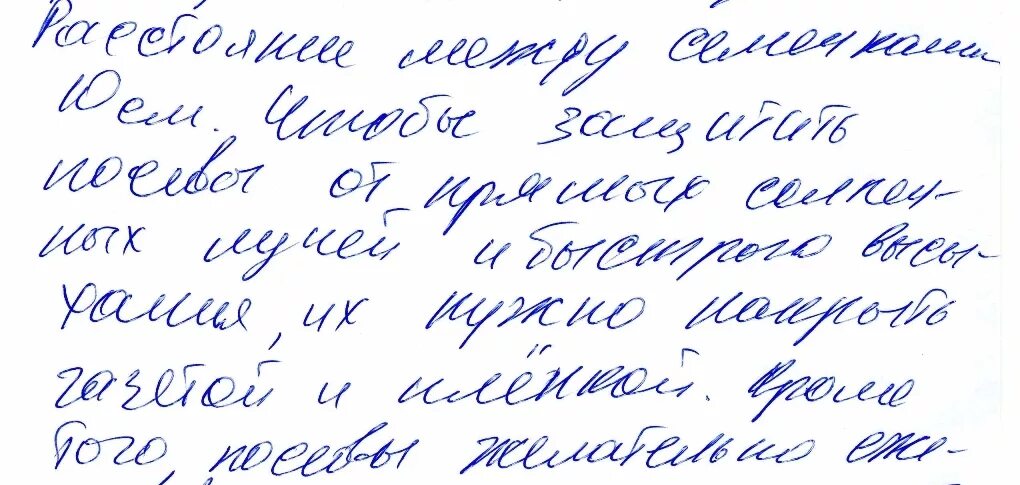 Расстояние между семечками
10 см. Чтобы защитить
посевы от прямых солнеч-
ных лучей и быстрого высы-
хания, их нужно накрыть
газетой и плёнкой. Кроме
того, посевы желательно еже-